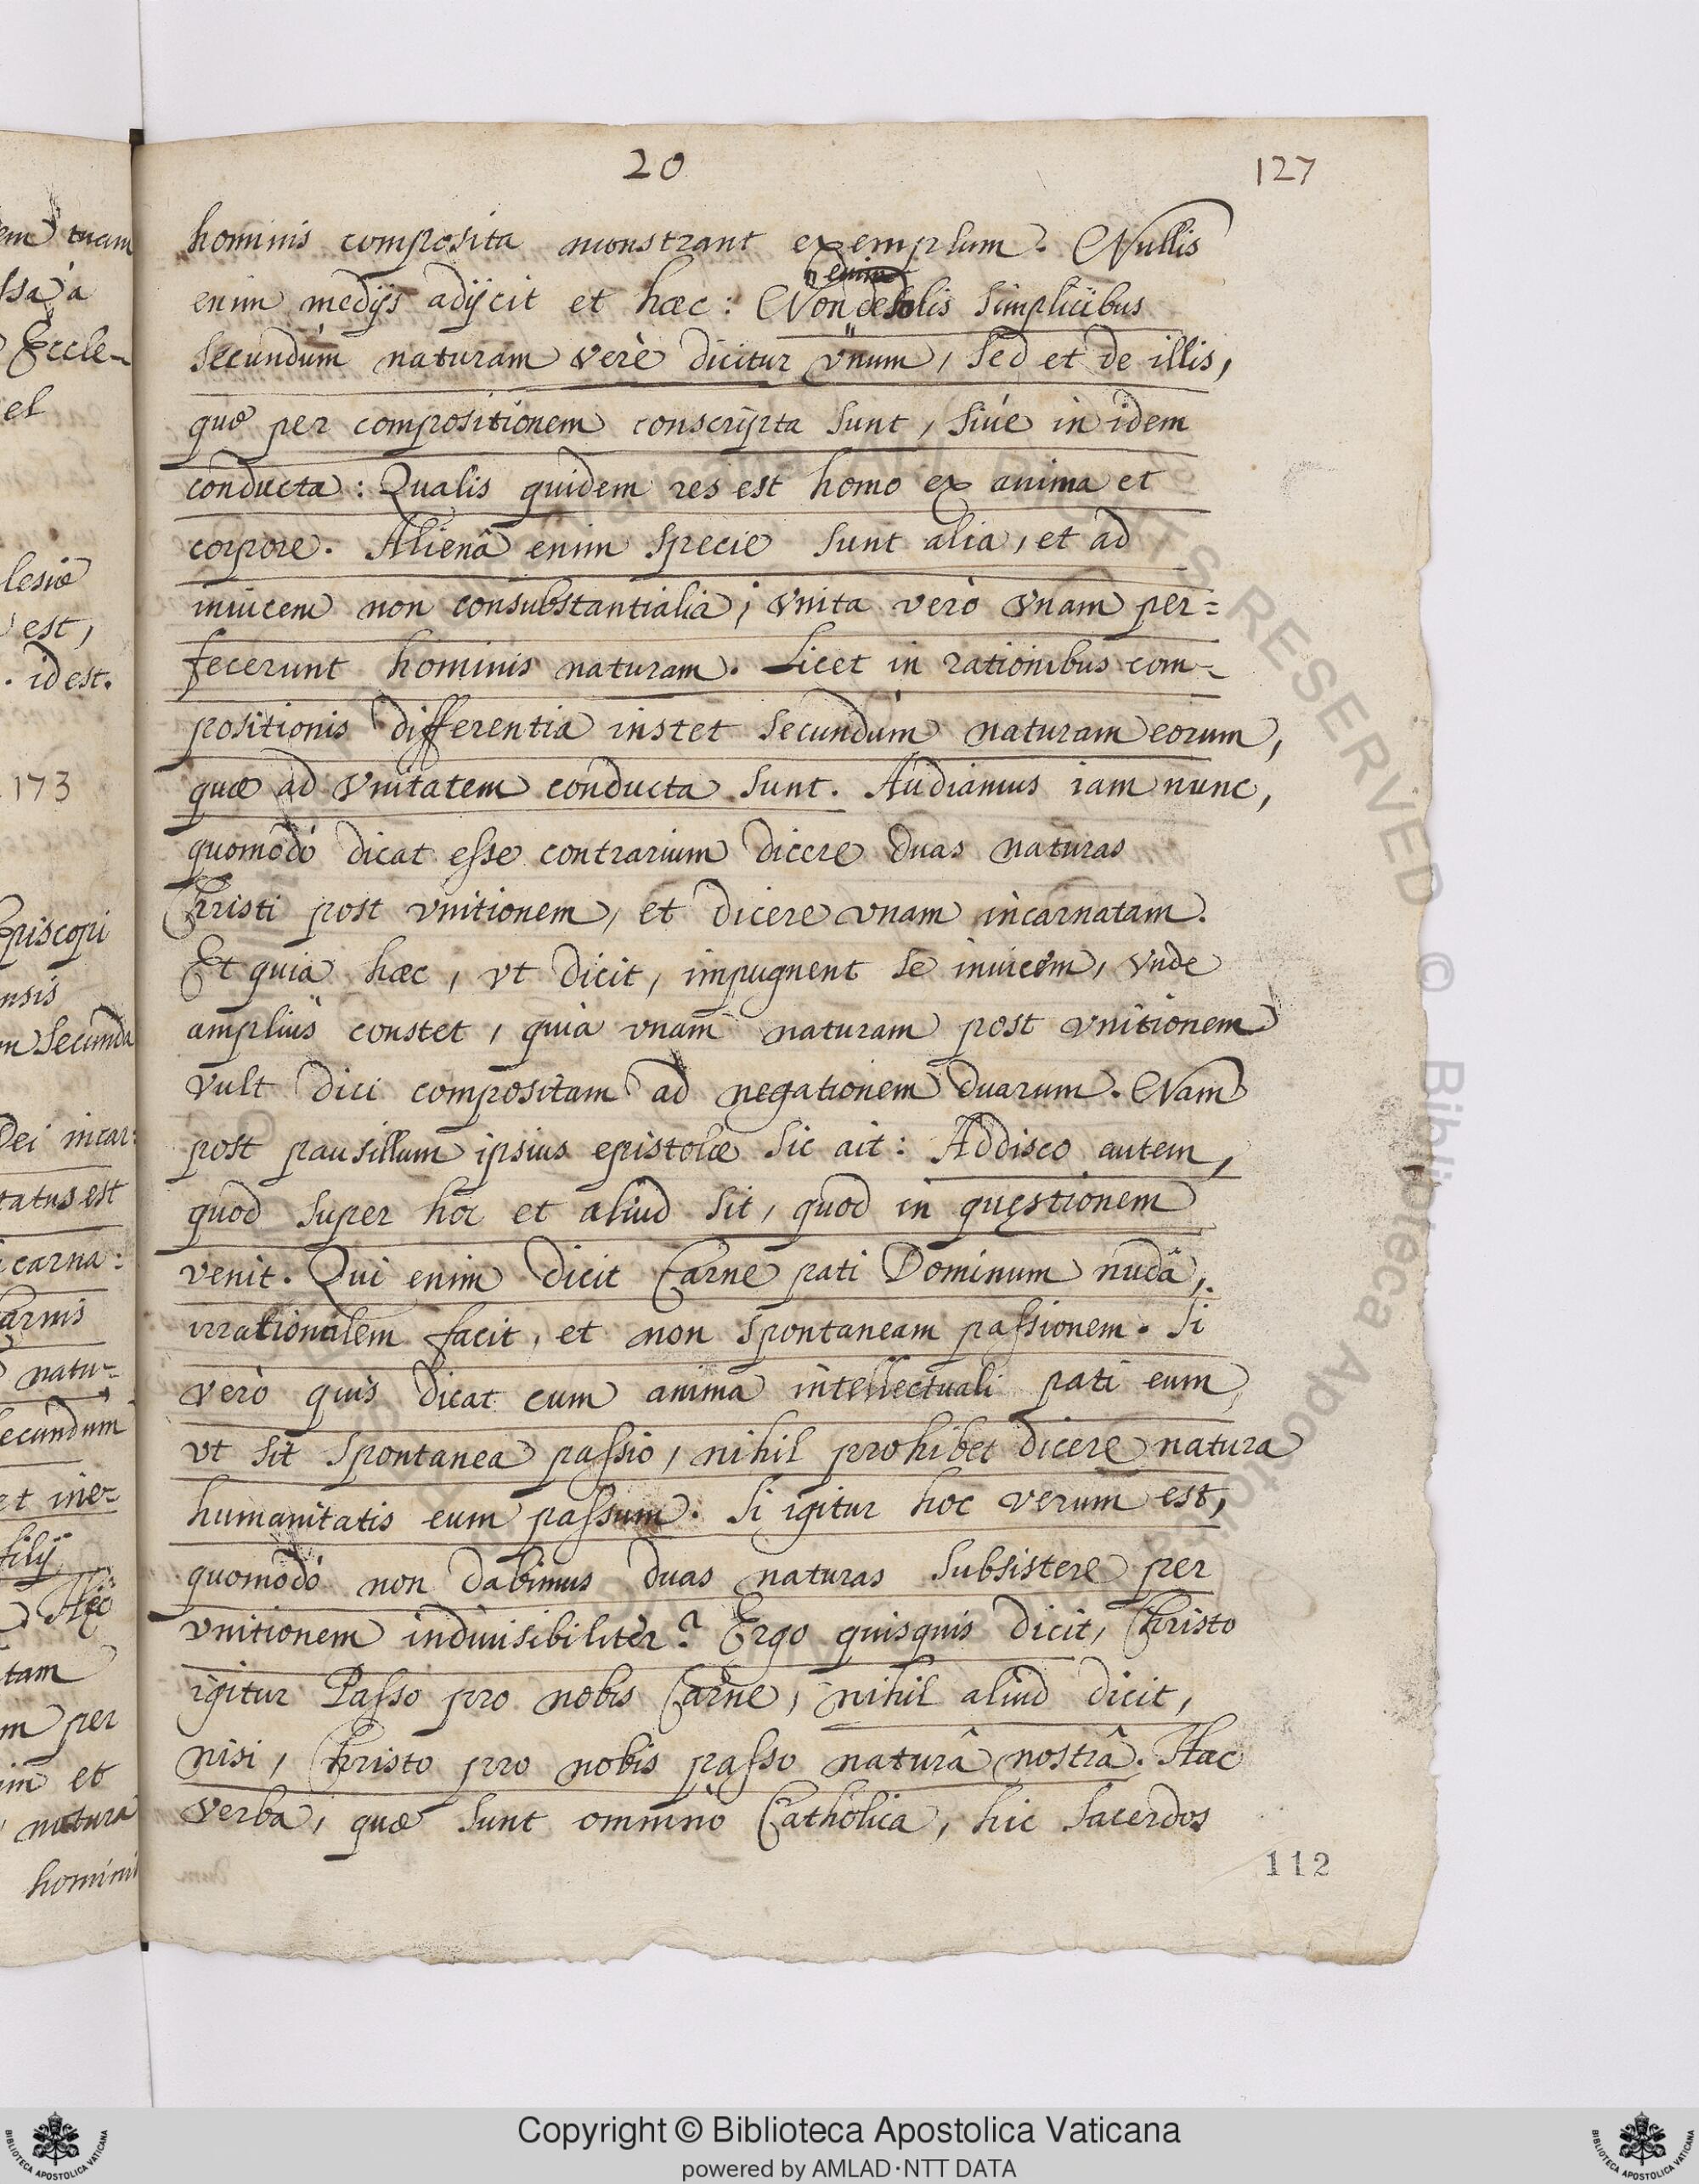 20
127
hominis composita monstrant exemplum. Nullis
enim medijs adijcit et hæc: Non enim de solis simplicibus
secundùm naturam verè dicitur vnum, sed et de illis,
quę per compositionem conscripta sunt, siue in idem
conducta: Qualis quidem res est homo ex anima et
corpore. Alienâ enim specie sunt alia, et ad
inuicem non consubstantialia; vnita verò vnam per=
fecerunt hominis naturam. Licet in rationibus com-
positionis differentia instet secundùm naturam eorum,
quæ ad vnitatem conducta sunt. Audiamus iam nunc,
quomodò dicat esse contrarium dicere duas naturas
Christi post vnitionem, et dicere vnam incarnatam.
Et quia hæc, vt dicit, impugnent se inuicem, vnde
ampliùs constet, quia vnam naturam post vnitionem
vult dici compositam ad negationem duarum. Nam
post pausillum ipsius epistolæ sic ait: Addisco autem,
quod super hoc et aliud sit, quod in quęstionem
venit. Qui enim dicit Carne pati Dominum nudâ,
irrationalem facit, et non spontaneam passionem. Si
verò quis dicat cum anima intellectuali pati eum,
vt sit spontanea passio, nihil prohibet dicere natura
humanitatis eum passum. Si igitur hoc verum est,
quomodò non dabimus duas naturas subsistere per
vnitionem indiuisibiliter? Ergo quisquis dicit, Christo
igitur Passo pro nobis Carne, nihil aliud dicit,
nisi, Christo pro nobis passo naturâ nostrâ. Hæc
verba, quæ sunt omninò Catholica, hic sacerdos
112
em tuam
ssa à
Eccle-
el
lesiæ
est,
. id est.
173
Episcopi
ensis
m secunda
Dei incar:
tatus est
carna:
carnis
natu-
secundùm
et ine-
filij
Hęc
tam
m per
im et
natura
homini
Copyright © Biblioteca Apostolica Vaticana
powered by AMLAD·NTT DATA